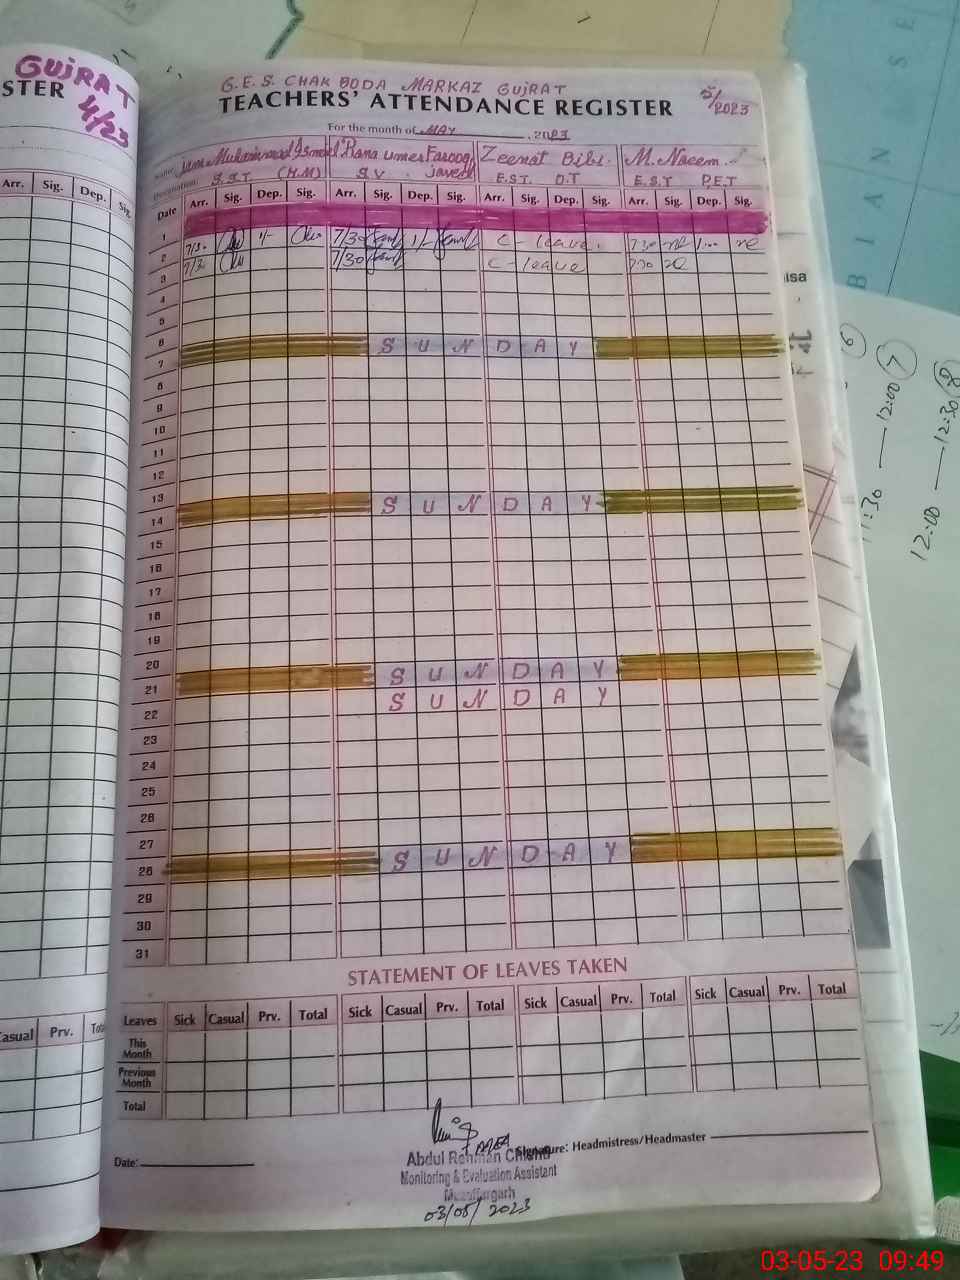 GUJRAT
STER
4/23
Arr. Sig. Dep. Sig.
Casual Prv. Total
G.E.S. CHAK BODA MARKAZ GUJRAT
TEACHERS' ATTENDANCE REGISTER
5/2023
For the month of MAY, 2023
Name: Muhammad Ismael Rana umer Farooq Zeenat Bibi. M. Naeem.
javed
Designation: S.S.T (H.M) S.V. E.S.T. O.T E.S.T P.E.T
Date Arr. Sig. Dep. Sig. Arr. Sig. Dep. Sig. Arr. Sig. Dep. Sig. Arr. Sig. Dep. Sig.
1 7/30 1/- 7/30 1/- C-leave. 7 30
2 7/30 7/30 C-leave 7:30
3
4
5
6
SUNDAY
7
8
9
10
11
12
13
SUNDAY
14
15
16
17
18
19
20
SUNDAY
21
SUNDAY
22
23
24
25
26
27
SUNDAY
28
29
30
31
STATEMENT OF LEAVES TAKEN
Leaves Sick Casual Prv. Total Sick Casual Prv. Total Sick Casual Prv. Total Sick Casual Prv. Total
This Month
Previous Month
Total
Date:
Signature: Headmistress/Headmaster
Abdul Rehman Chishti
Monitoring & Evaluation Assistant
Muzaffargarh
03/05/2023
isa
BIAN SE
6
11:30 — 12:00 7
12:00 — 12:30 8
03-05-23 09:49